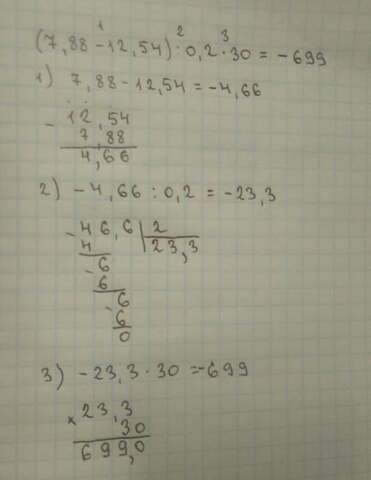 1 2 3
(7,88 - 12,54) : 0,2 · 30 = - 699
1) 7,88 - 12,54 = - 4,66
- 12,54
7,88
4,66
2) - 4,66 : 0,2 = - 23,3
- 46,6 | 2
4 23,3
- 6
6
- 6
6
0
3) - 23,3 · 30 = - 699
× 23,3
30
699,0